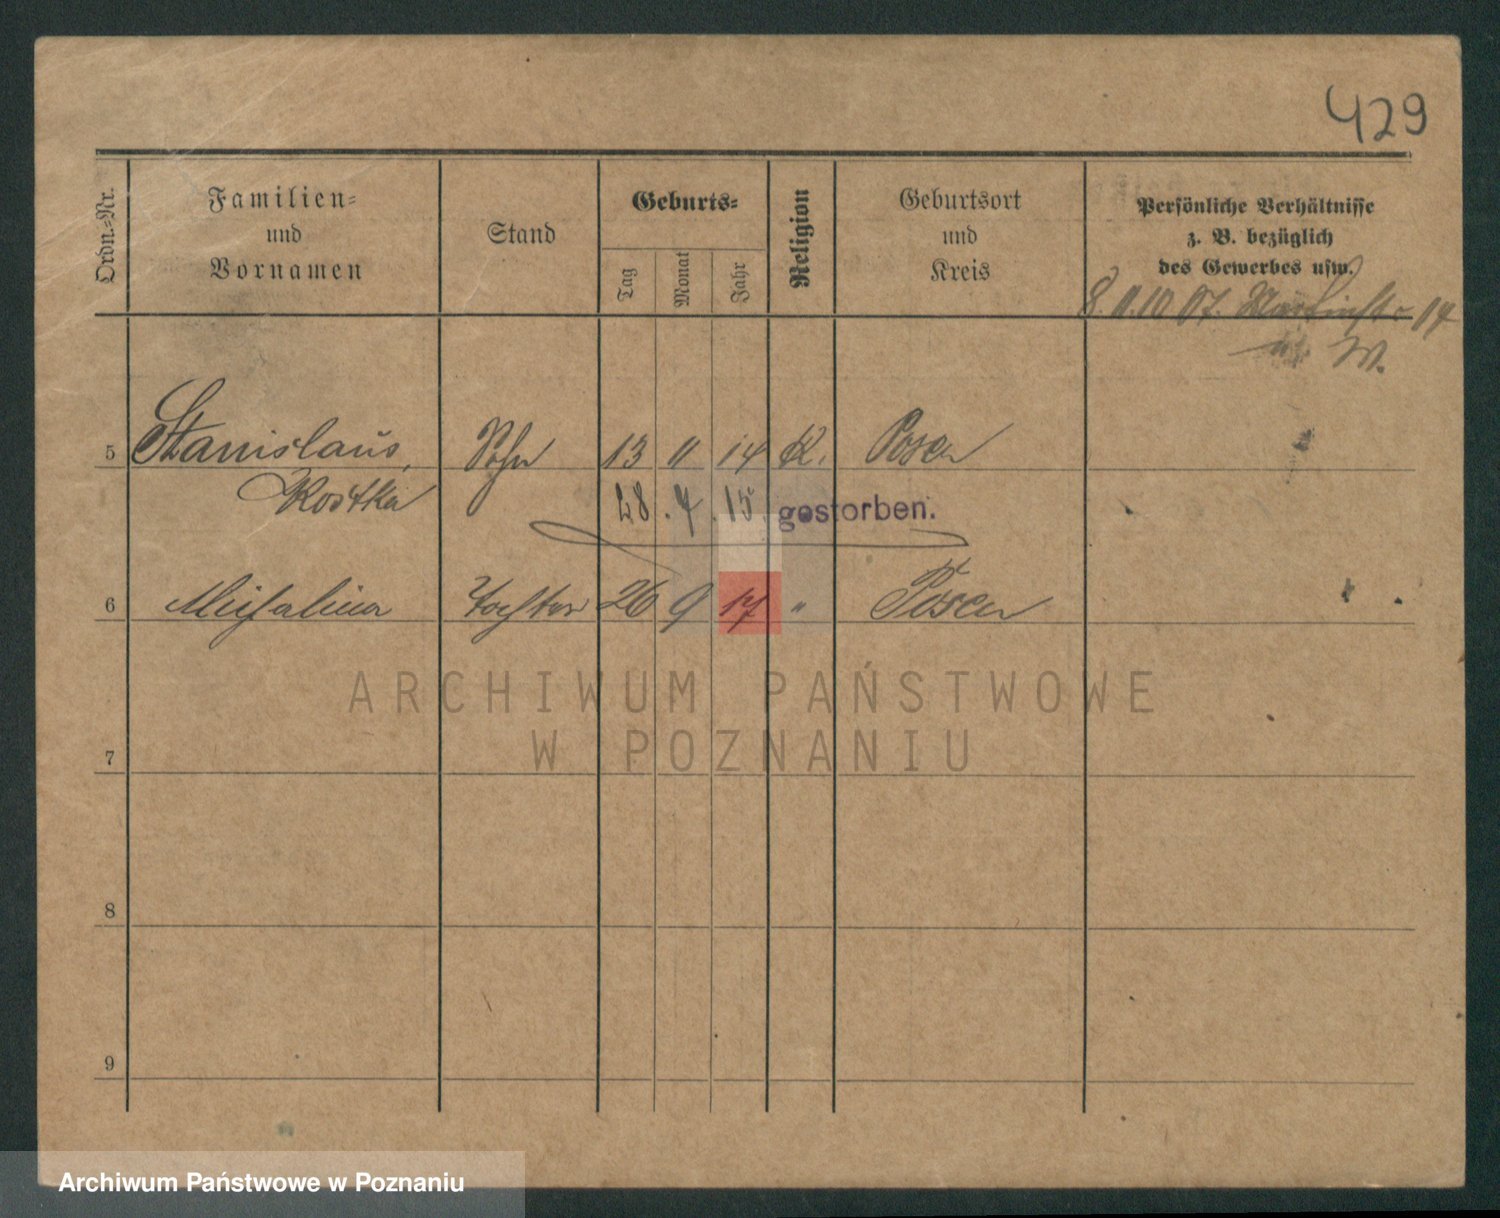 429
Ordn.-Nr.
Familien-
und
Vornamen
Stand
Geburts-
Tag
Monat
Jahr
Religion
Geburtsort
und
Kreis
Persönliche Verhältnisse
z. B. bezüglich
des Gewerbes usw.
07. Martinstr. 14
W.
5 Stanislaus, Sohn 13 11 14 K. Posen
Kostka
28. 4. 15. gestorben.
6 Tochter 26 9 17 " Posen
ARCHIWUM PAŃSTWOWE
W POZNANIU
7
8
9
Archiwum Państwowe w Poznaniu